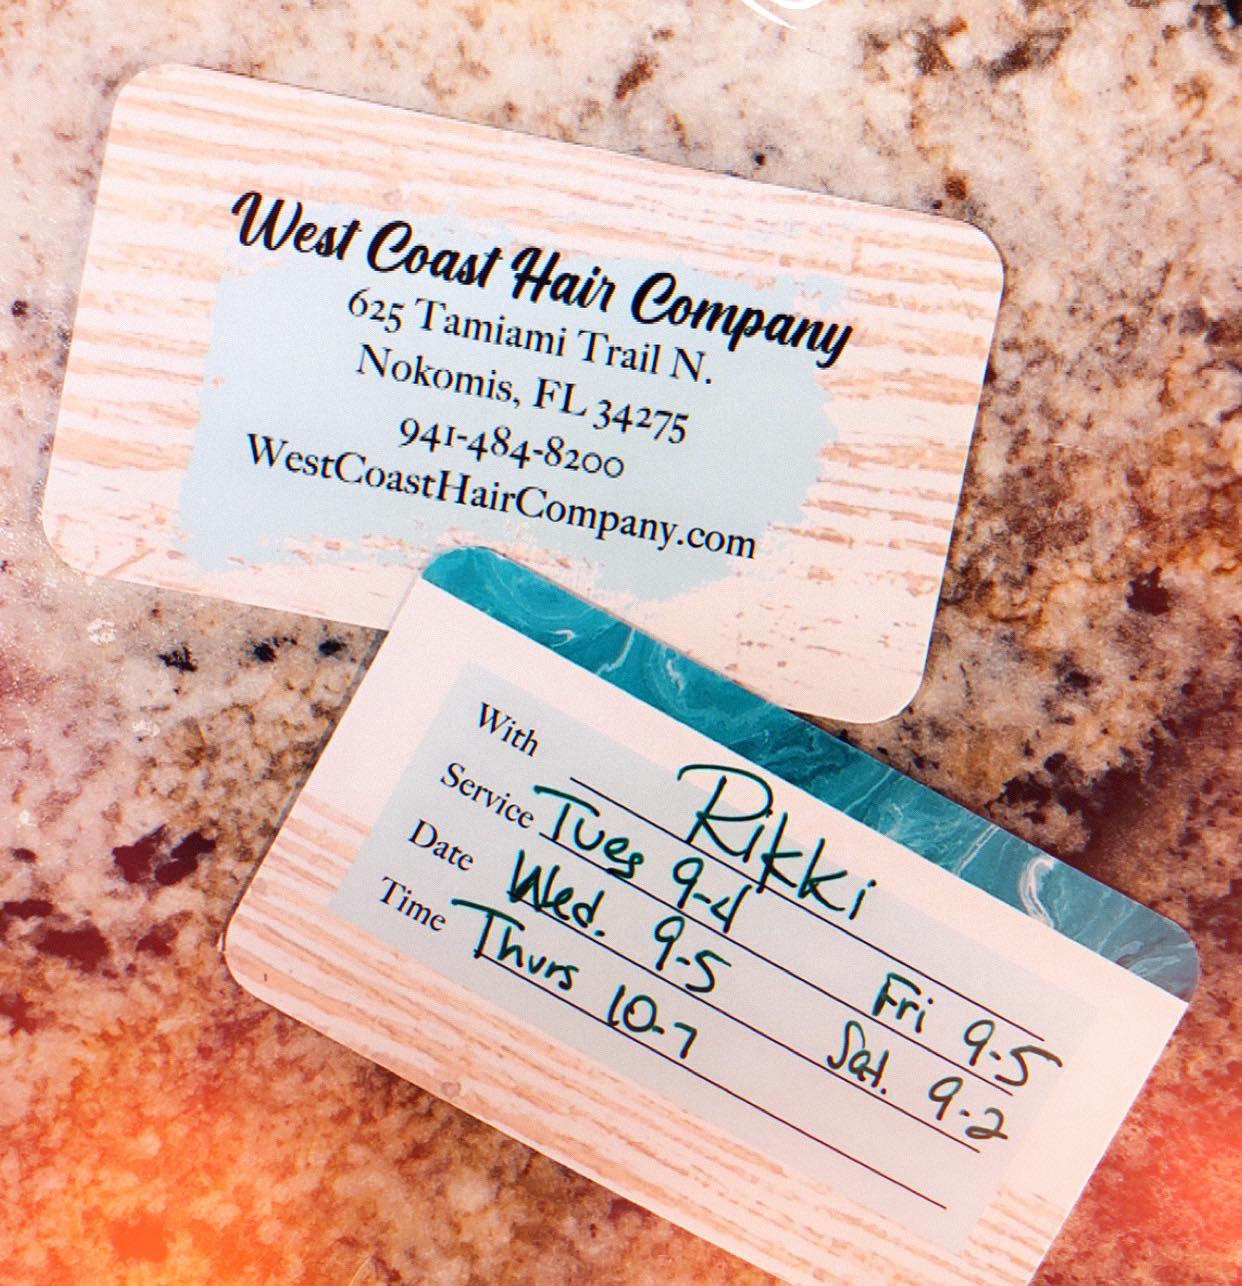 West Coast Hair Company
625 Tamiami Trail N.
Nokomis, FL 34275
941-484-8200
WestCoastHairCompany.com
With Rikki
Service Tues 9-4 Fri 9-5
Date Wed. 9-5 Sat. 9-2
Time Thurs 10-7